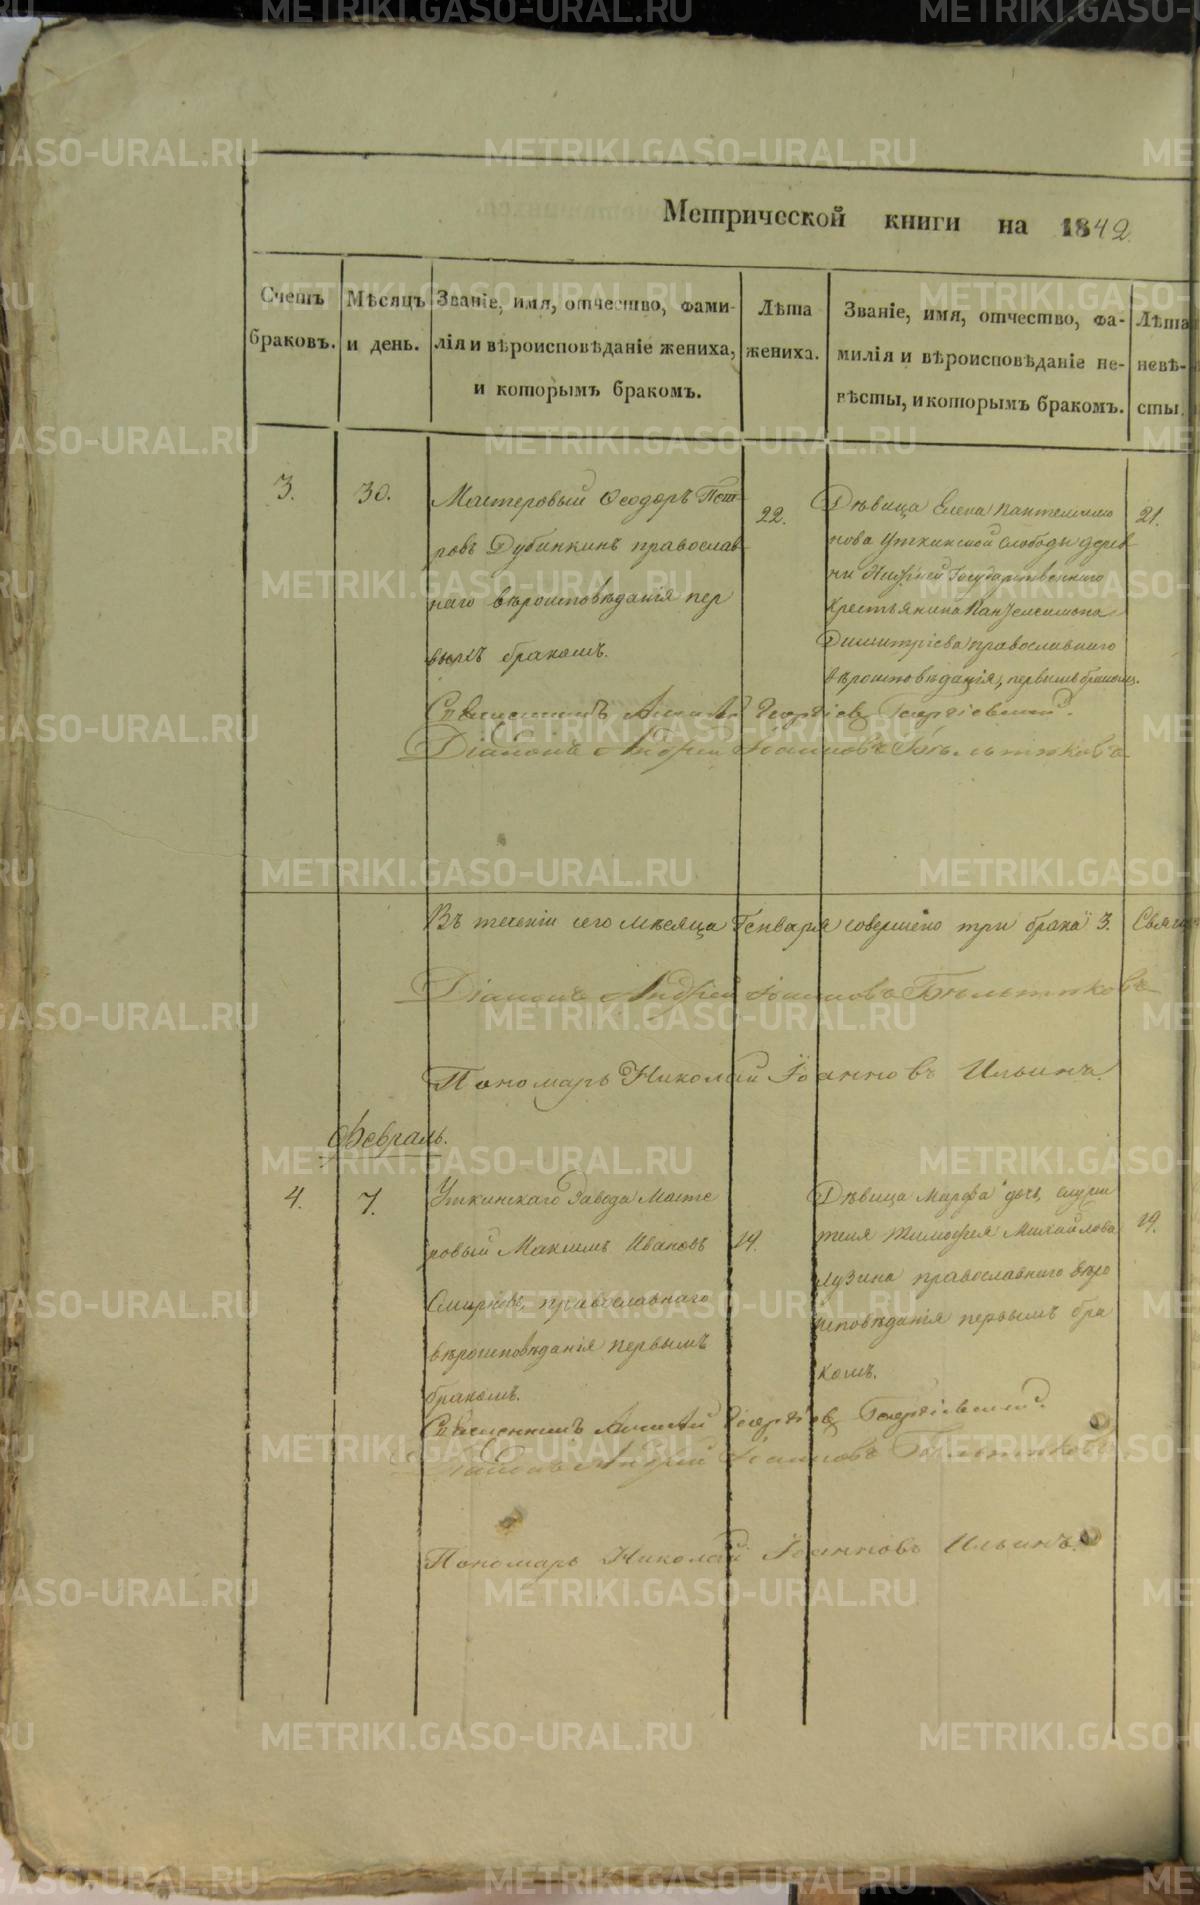 Метрической книги на 1842.
Счетъ браковъ.
Мѣсяцъ и день.
Званіе, имя, отчество, фами-
лія и вѣроисповѣданіе жениха,
и которымъ бракомъ.
Лѣта
жениха.
Званіе, имя, отчество, фа-
милія и вѣроисповѣданіе не-
вѣсты, и которымъ бракомъ.
Лѣта
невѣ-
сты.
3.
30.
Мастеровый Ѳеодоръ Пет
ровъ Дубинкинъ православ
наго вѣроисповѣданія пер
вымъ бракомъ.
22.
Дѣвица Елена Пантелеимо
нова Уткинской Слободы дерев
ни Нижней Государственнаго
Крестьянина Пантелеимона
Димитріева православнаго
вѣроисповѣданія, первымъ бракомъ.
21.
Священникъ Алексѣй Георгіевъ Георгіевскій.
Діаконъ Андрей Іоанновъ Бѣльтюковъ
Въ теченіи сего мѣсяца Генваря совершено три брака 3.
Діаконъ Андрей Іоанновъ Бѣльтюковъ
Пономарь Николай Іоанновъ Ильинъ.
Февраль.
4.
7.
Уткинскаго Завода Масте
ровый Максимъ Ивановъ
Смирновъ, православнаго
вѣроисповѣданія первымъ
бракомъ.
19.
Дѣвица Марфа дочь служи
теля Тимофея Михайлова
Лузина православнаго вѣро
исповѣданія первымъ бра
комъ.
19.
Священникъ Алексѣй Георгіевъ Георгіевскій.
Діаконъ Андрей Іоанновъ Бѣльтюковъ
Пономарь Николай Іоанновъ Ильинъ.
METRIKI.GASO-URAL.RU